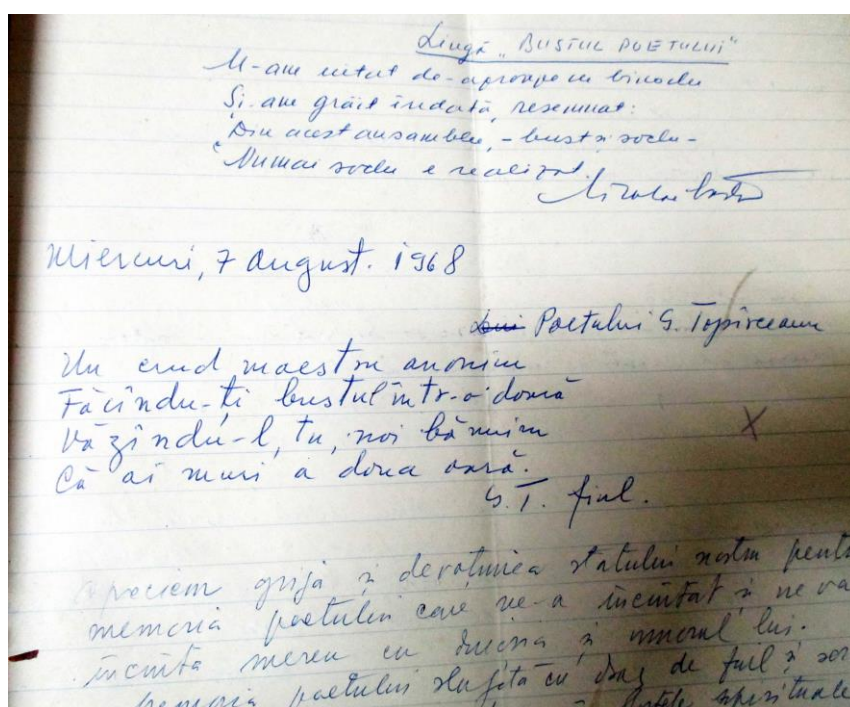 Lîngă "BUSTUL POETULUI"
M-am uitat de-aproape cu binoclu
Și-am grăit îndată, resemnat:
Din acest ansamblu, - bust și soclu -
Numai soclu e realizat.
Miercuri, 7 August. 1968
Poetului G. Topîrceanu
Un crud maestru anonim
Făcîndu-ți bustul într-o doară
Văzîndu-l, tu, noi bănuim
Că ai muri a doua oară.
G.T. fiul.
Apreciem grija și devoțiunea statului nostru pentru
memoria poetului care ne-a încîntat și ne va
încînta mereu cu duioșia și umorul lui.
memoria poetului slujită cu drag de fiul și
spirituale